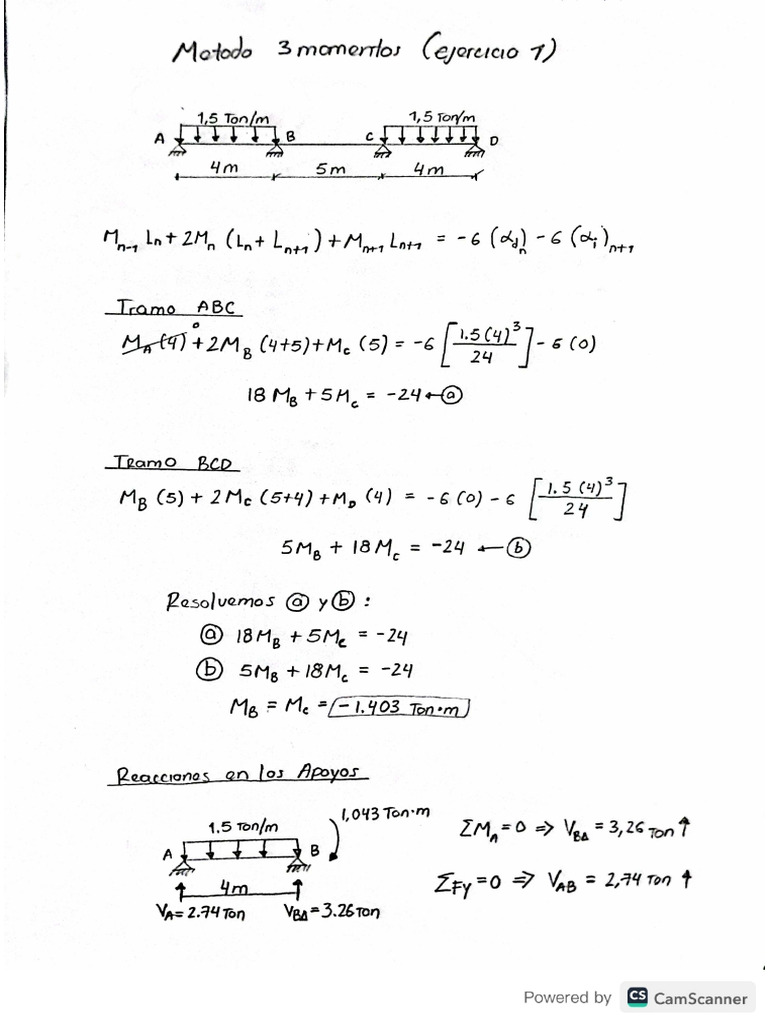 Metodo 3 momentos (ejercicio 1)
1,5 Ton/m 1,5 Ton/m
A B C D
4m 5m 4m
M_{n-1} L_n + 2M_n (L_n + L_{n+1}) + M_{n+1} L_{n+1} = -6 (α_d)_n - 6 (α_i)_{n+1}
Tramo ABC
M_A(4)° + 2M_B (4+5) + M_C (5) = -6 [1.5(4)^3 / 24] - 6 (0)
18 M_B + 5M_C = -24 ← ⓐ
Tramo BCD
M_B (5) + 2M_C (5+4) + M_D (4) = -6 (0) - 6 [1.5 (4)^3 / 24]
5M_B + 18M_C = -24 ← ⓑ
Resolvemos ⓐ y ⓑ :
ⓐ 18M_B + 5M_C = -24
ⓑ 5M_B + 18M_C = -24
M_B = M_C = -1.403 Ton·m
Reacciones en los Apoyos
1.5 Ton/m 1,043 Ton·m
A B
4m
V_A = 2.74 Ton V_{BA} = 3.26 Ton
ΣM_A = 0 ⇒ V_{BA} = 3,26 Ton ↑
ΣFy = 0 ⇒ V_{AB} = 2,74 Ton ↑
Powered by CS CamScanner